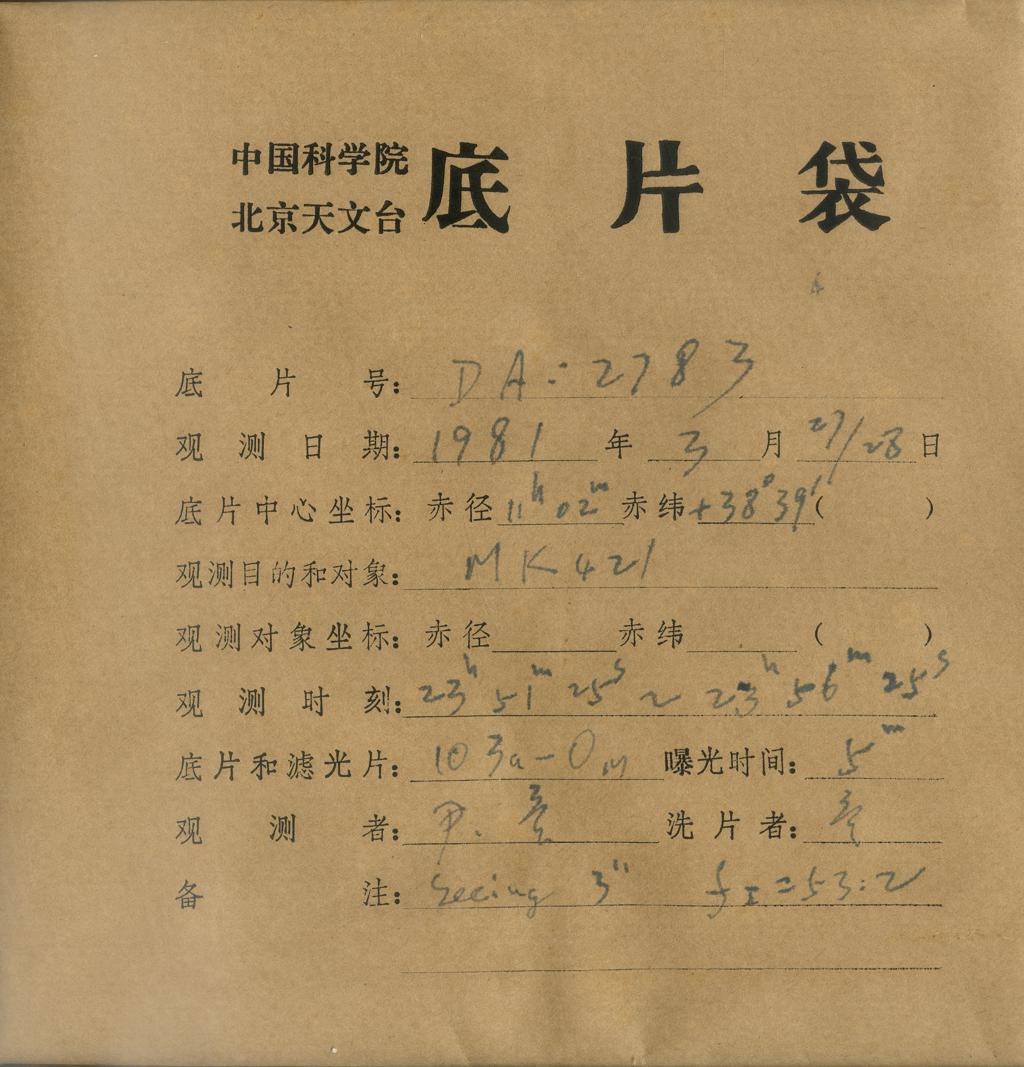 中国科学院
北京天文台
底片袋
底片号: DA:2783
观测日期: 1981年3月27/28日
底片中心坐标: 赤径 11h02m 赤纬 +38°39′( )
观测目的和对象: MK421
观测对象坐标: 赤径 赤纬 ( )
观测时刻: 23h51m25s~23h56m25s
底片和滤光片: 103a-O 曝光时间: 5m
观测者: 尹.
洗片者:
备注: Seeing 3" fI=53:2